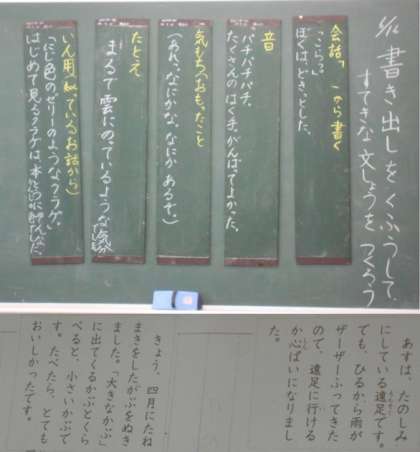 書き出しをくふうして、
すてきな文しょうをつくろう
会話「 」から書く
「こらっ。」
ぼくは、どきっとした。
音
パチパチパチ。
たくさんのはく手。がんばってよかった。
気もち(おもったこと)
(あれ、なにかな、なにかあるぞ。)
たとえ
まるで雲にのっているような気分
いん用(似ているお話から)
「にじ色のゼリーのようなクラゲ。」
はじめて見るクラゲは、本
あすは、たのしみ
にしている遠足です。
でも、ひるから雨が
ザーザーふってきた
ので、遠足に行ける
か心ぱいになりまし
た。
きょう、四月にたね
まきをしたかぶをぬき
ました。「大きなかぶ」
に出てくるかぶとくら
べると、小さいかぶで
す。たべたら、とても
おいしかったです。